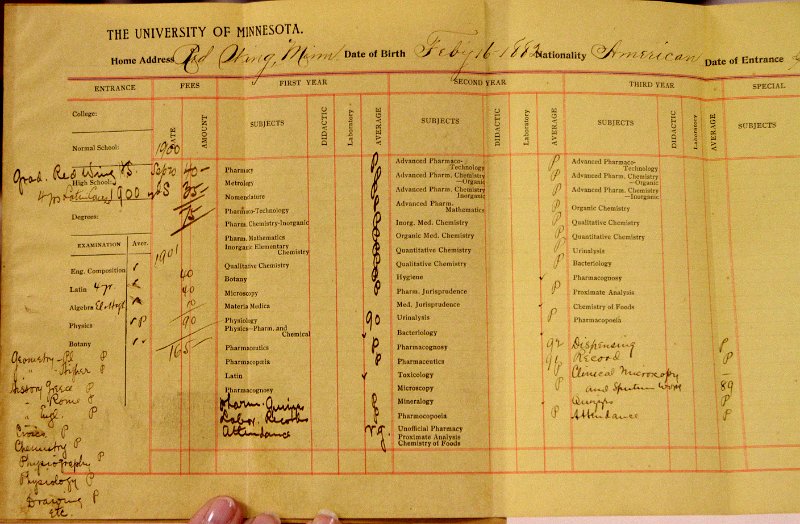 THE UNIVERSITY OF MINNESOTA.
Home Address Red Wing, Minn Date of Birth Feby 16 1882 Nationality American Date of Entrance
ENTRANCE FEES FIRST YEAR SECOND YEAR THIRD YEAR SPECIAL
DATE AMOUNT SUBJECTS DIDACTIC Laboratory AVERAGE SUBJECTS DIDACTIC Laboratory AVERAGE SUBJECTS DIDACTIC Laboratory AVERAGE SUBJECTS
College:
Normal School:
Grad. Red Wing H.S.
High School:
4 yrs Latin Course 1900
Degrees:
EXAMINATION Aver.
Eng. Composition
Latin 4 yr.
Algebra El. High
Physics P
Botany
Geometry - Pl P
" Higher P
History Greece P
" Rome P
" Eng. P
Civics P
Chemistry P
Physiography P
Physiology P
Drawing P
Etc.
1900
Sept 20 40-
35
75
1901
40
40
10
90
165
Pharmacy
Metrology
Nomenclature
Pharmaco-Technology
Pharm. Chemistry-Inorganic
Pharm. Mathematics
Inorganic Elementary
Chemistry
Qualitative Chemistry
Botany
Microscopy
Materia Medica
Physiology 90
Physics-Pharm. and
Chemical
Pharmaceutics P
Pharmacopœia P
Latin
Pharmacognosy
Pharm. Quizzes
Labor. Records
Attendance
Advanced Pharmaco-
Technology P
Advanced Pharm. Chemistry
-Organic P
Advanced Pharm. Chemistry
Inorganic P
Advanced Pharm.
Mathematics P
Inorg. Med. Chemistry P
Organic Med. Chemistry P
Quantitative Chemistry P
Hygiene
Pharm. Jurisprudence P
Med. Jurisprudence
Urinalysis P
Bacteriology
Pharmacognosy 92
Pharmaceutics 91
Toxicology P
Microscopy P
Mineralogy
Pharmacopoeia P
Unofficial Pharmacy
Proximate Analysis
Chemistry of Foods
Advanced Pharmaco-
Technology
Advanced Pharm. Chemistry
—Organic
Advanced Pharm. Chemistry
—Inorganic
Organic Chemistry
Qualitative Chemistry
Quantitative Chemistry
Urinalysis
Bacteriology
Pharmacognosy
Proximate Analysis
Chemistry of Foods
Pharmacopoeia
Dispensing P
Record P
Clinical Microscopy -
and Sputum Work 89
Quizzes P
Attendance P